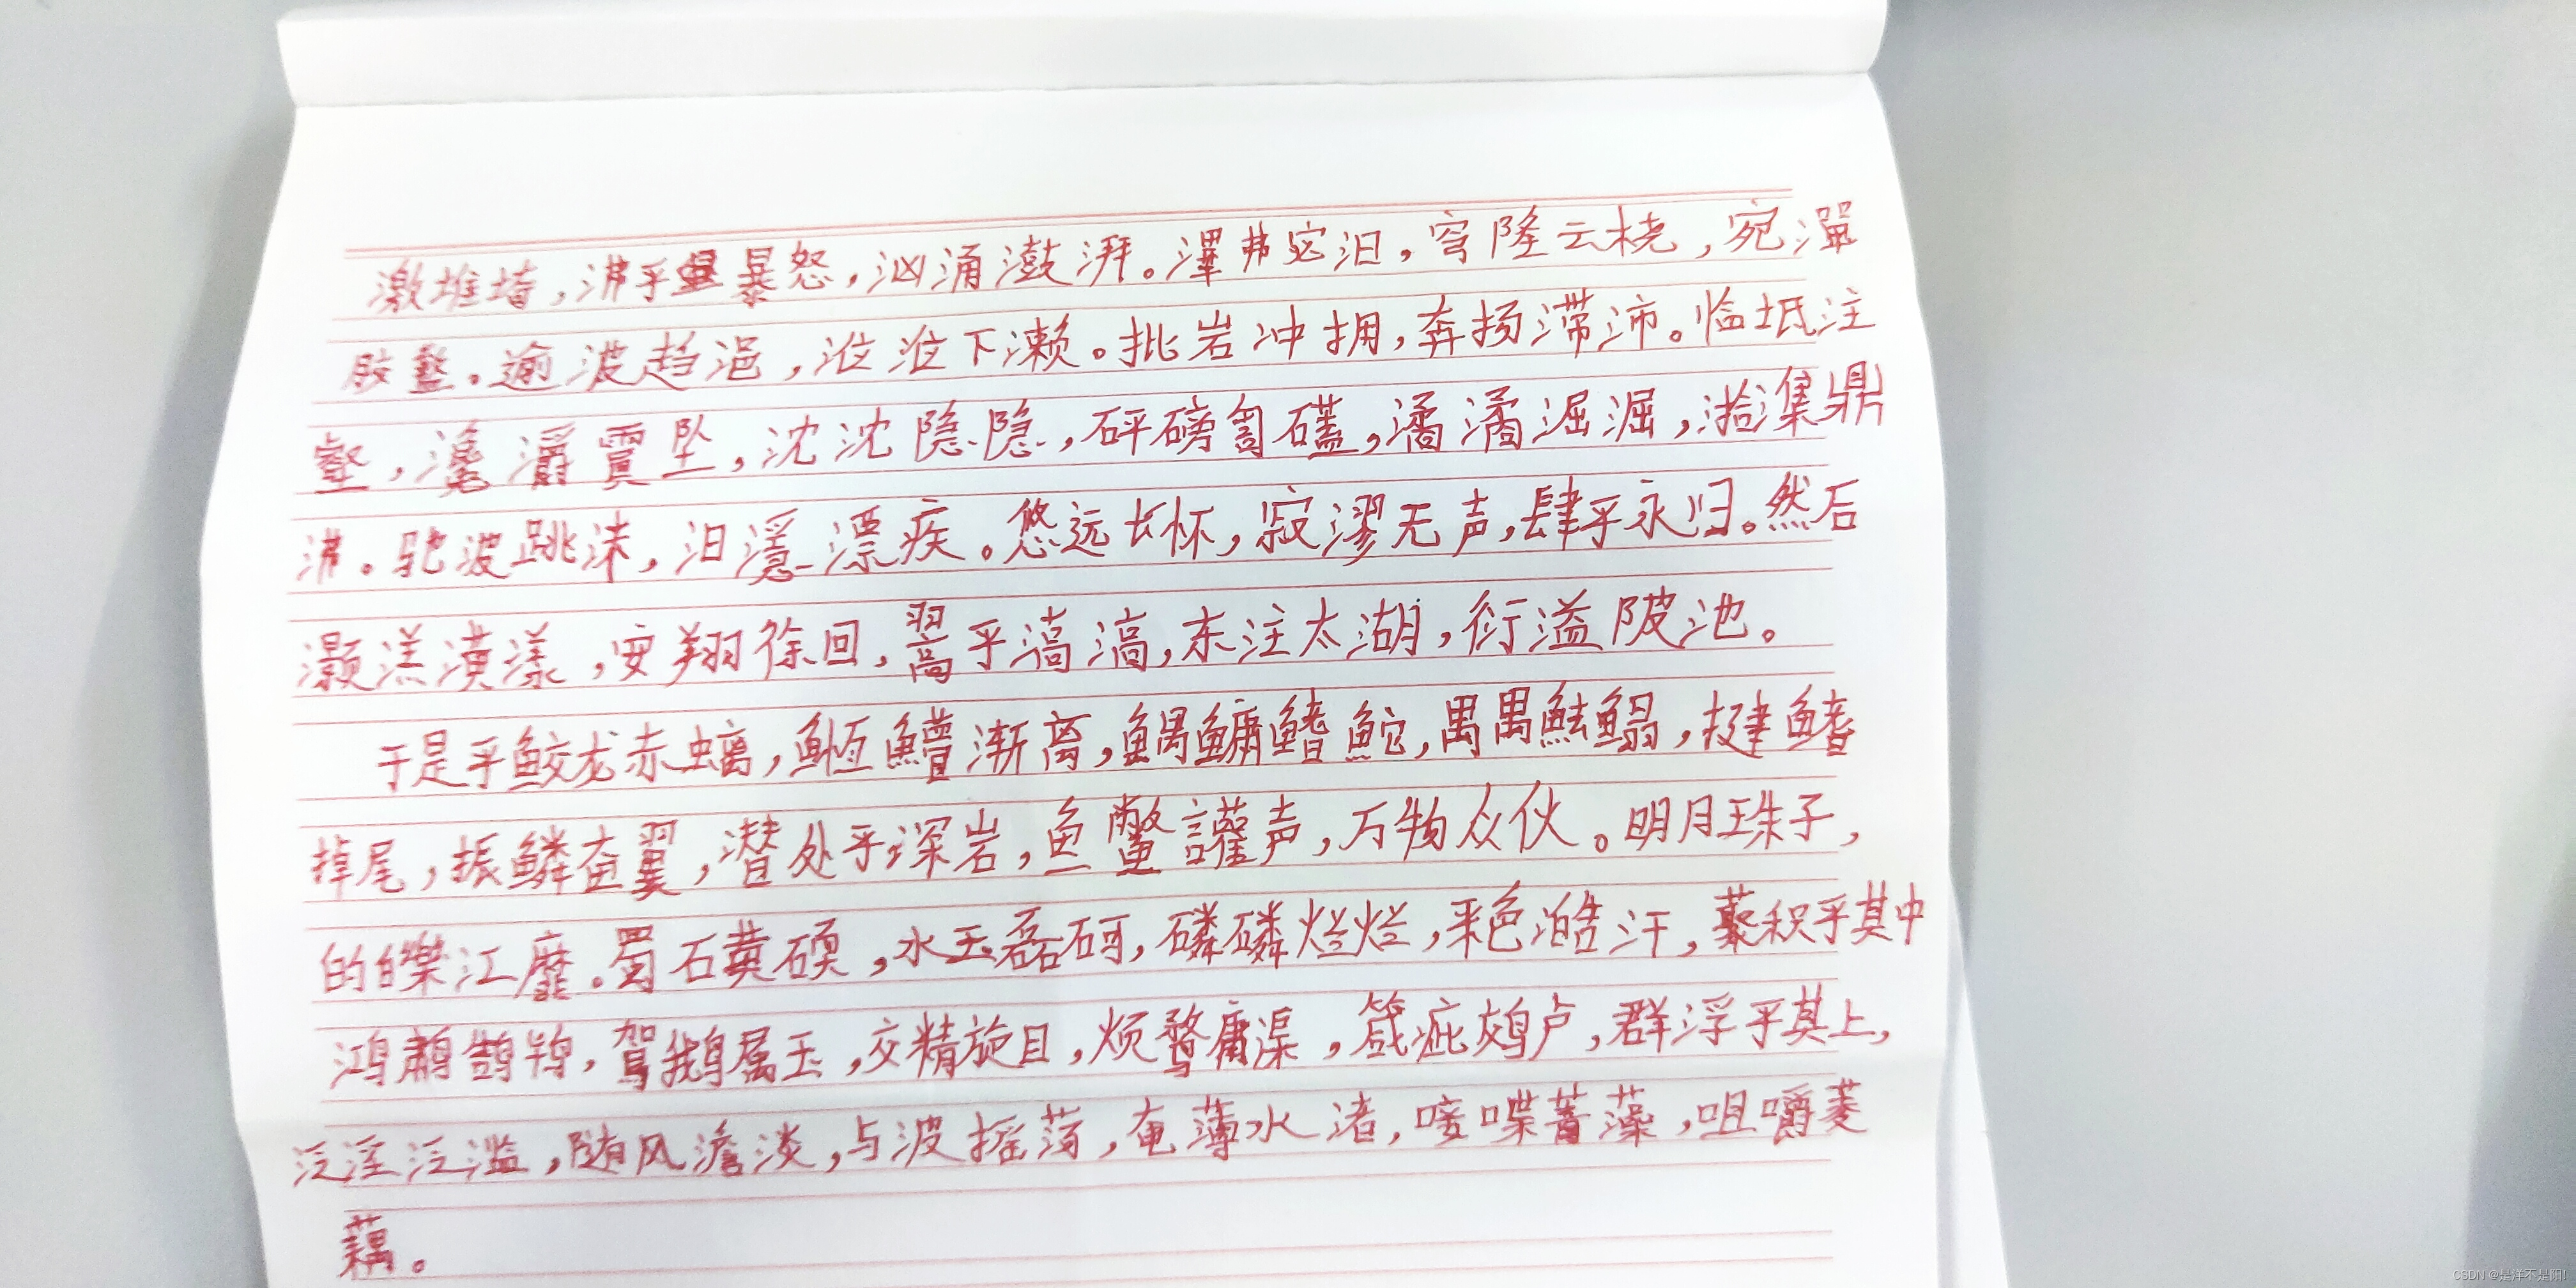 激堆埼,沸乎暴怒,汹涌澎湃。滭弗宓汩,穹隆云桡,宛潬
胶盭。逾波趋浥,涖涖下濑。批岩冲拥,奔扬滞沛。临坻注
壑,瀺灂霣坠,沈沈隐隐,砰磅訇礚,潏潏淈淈,湁潗鼎
沸。驰波跳沫,汩㴔漂疾。悠远长怀,寂漻无声,肆乎永归。然后
灏溔潢漾,安翔徐回,翯乎滈滈,东注太湖,衍溢陂池。
于是乎鲛龙赤螭,䱍䲛渐离,鰅鳙鳍鮀,禺禺魼鳎,揵鳍
掉尾,振鳞奋翼,潜处乎深岩,鱼鳖讙声,万物众伙。明月珠子,
的皪江靡。蜀石黄碝,水玉磊砢,磷磷烂烂,采色澔汗,藂积乎其中
鸿鹔鹄鸨,鴐鹅属玉,交精旋目,烦鹜庸渠,箴疵䴔卢,群浮乎其上,
泛淫泛滥,随风澹淡,与波摇荡,奄薄水渚,唼喋菁藻,咀嚼菱
藕。
CSDN @是洋不是阳!